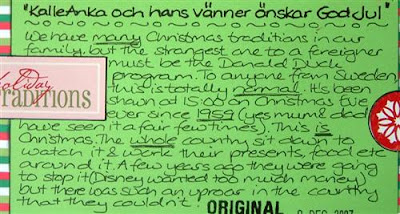 "Kalle Anka och hans vänner önskar God Jul"
We have many Christmas traditions in our
family, but the strangest one to a foreigner
must be the Donald Duck
program. To anyone from Sweden
this is totally normal. It's been
shown at 15:00 on Christmas Eve
ever since 1959 (yes mum & dad
have seen it a fair few times). This is
Christmas. The whole country sit down to
watch it & work their presents, food etc
around it. A few years ago they were going
to stop it (Disney wanted too much money)
but there was such an uproar in the country
that they couldn't!
Holiday
Traditions
ORIGINAL